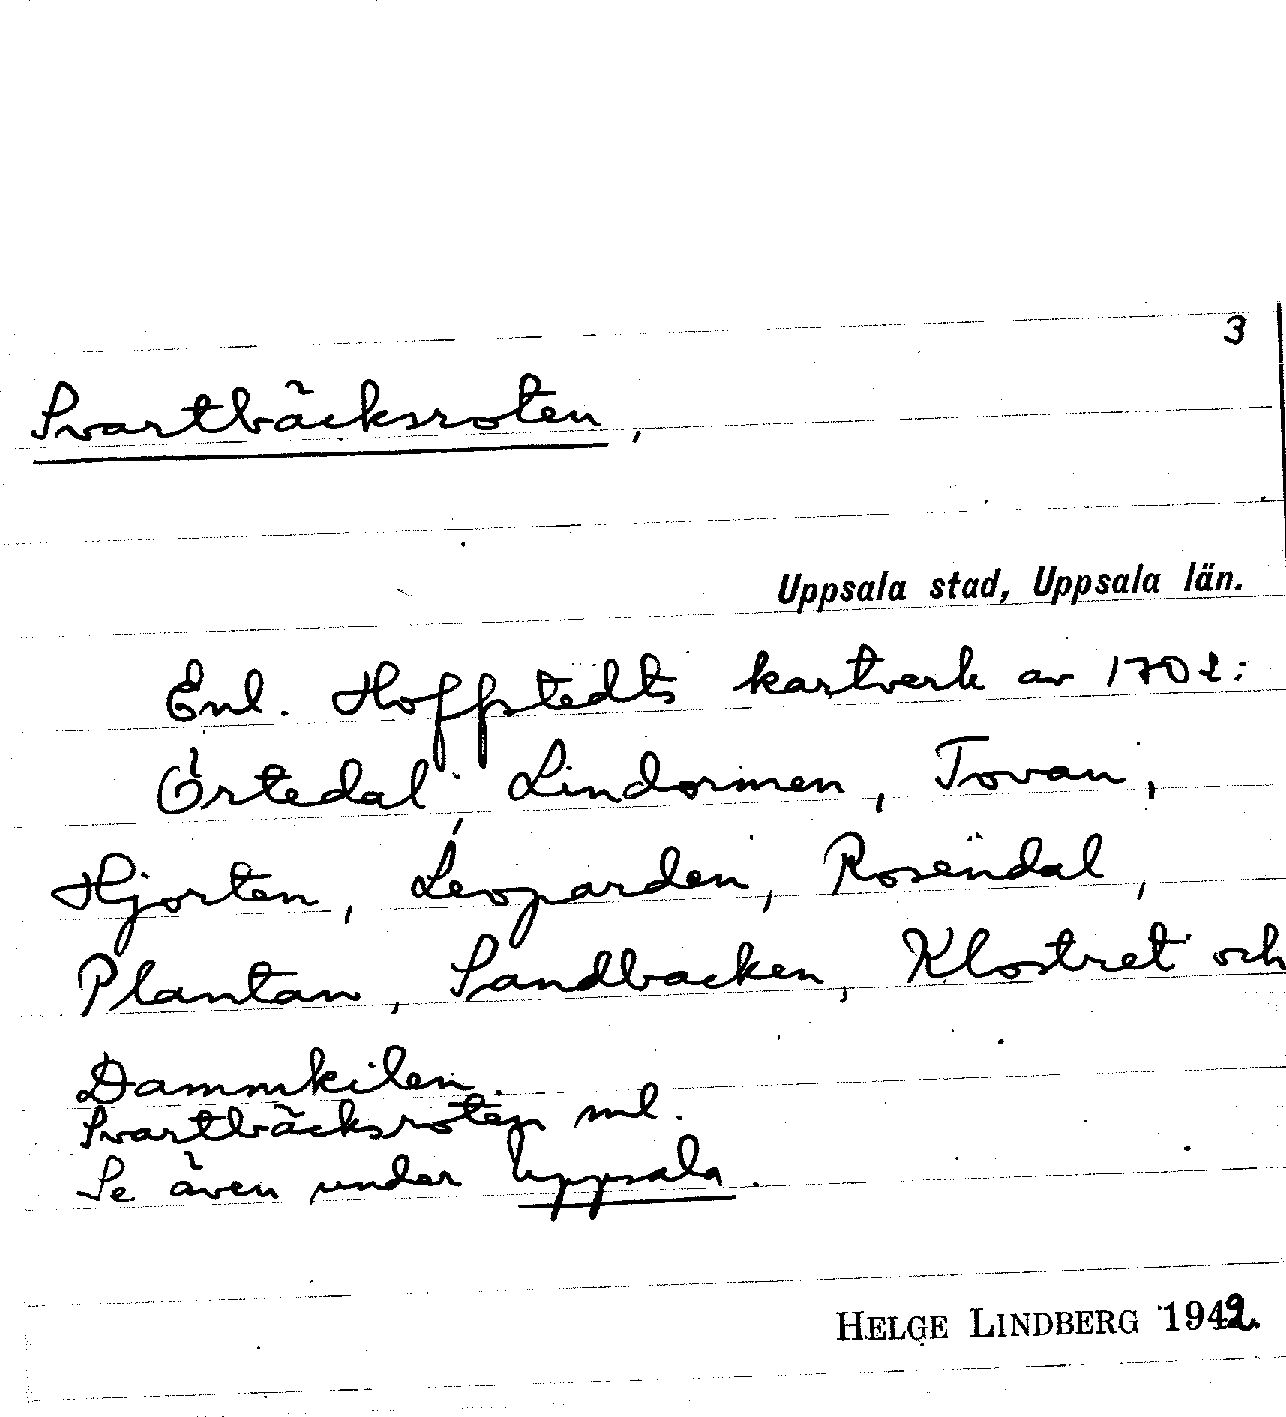 3
Svartbäcksroten,
Uppsala stad, Uppsala län.
Enl. Hoffstedts kartverk av 1702:
Örtedal, Lindormen, Tovan,
Hjorten, Leoparden, Rosendal,
Plantan, Sandbacken, Klostret och
Dammkilen.
Svartbäcksroten ml.
Se även under Uppsala.
HELGE LINDBERG 1942.